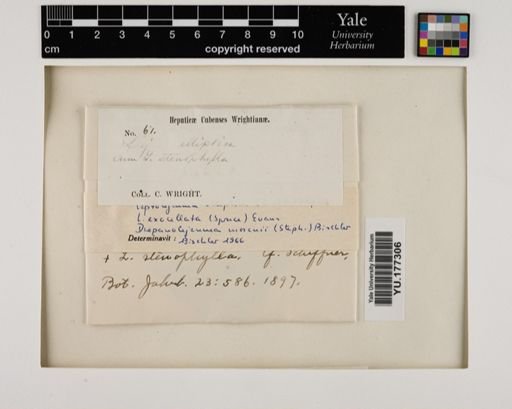 0 1 2 3 4 5 6 7 8 9 10
cm
copyright reserved
Yale
University
Herbarium
Hepaticæ Cubenses Wrightianæ.
No. 61.
cum L. stenophylla
Coll. C. WRIGHT.
L. exocellata (Spruce) Evans
Drepanolejeunea mosenii (Steph.) Bischler
Determinavit : Bischler 1966
+ L. stenophylla. cf. Schiffner,
Bot. Jahrb. 23: 586. 1897.
Yale University Herbarium
YU.177306